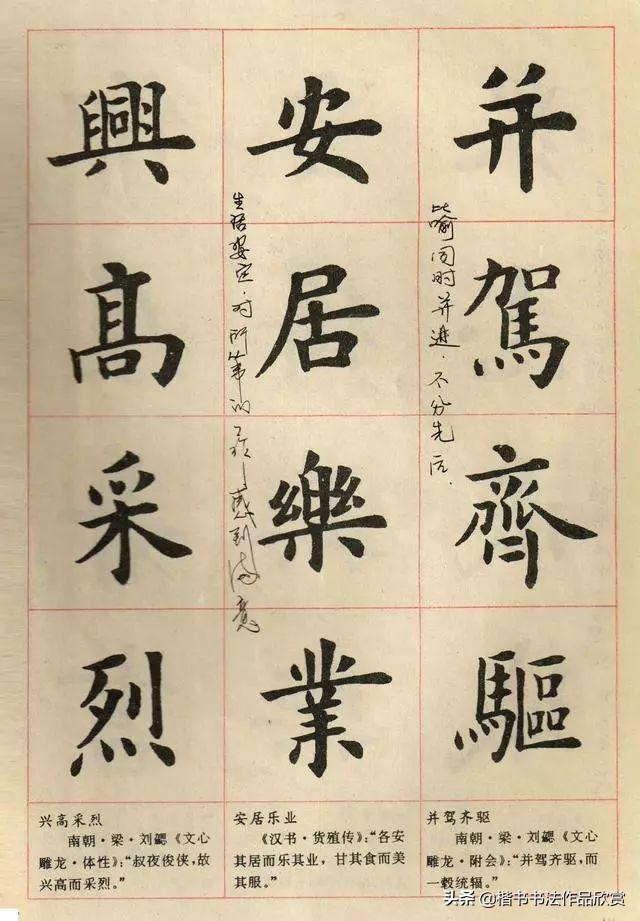 并駕齊驅
比喻同时并进.不分先后.
安居樂業
生活安定.对所的工作感到满意
興高采烈
并驾齐驱
南朝·梁·刘勰《文心
雕龙·附会》:“并驾齐驱,而
一毂统辐。”
安居乐业
《汉书·货殖传》:“各安
其居而乐其业，甘其食而美
其服。”
兴高采烈
南朝·梁·刘勰《文心
雕龙·体性》:“叔夜俊侠,故
兴高而采烈。”
头条 @楷书书法作品欣赏